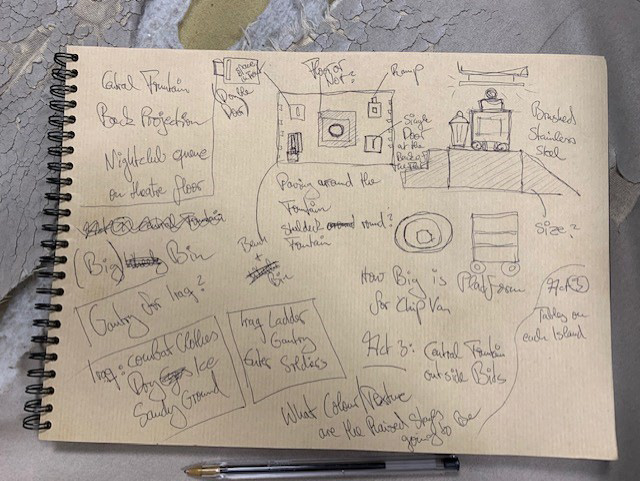 Central Fountain
Back Projection
Nightclub queue
on theatre floor
Double
Door
Floor or
Not?
Ramp
Single
Door
at the
Brushed
Stainless
Steel
Size?
Paving around the
Fountain
round?
Fountain
(Big) Bin
Bench
+
Bin
Gantry for Iraq?
Iraq: Combat Clothes
Dry Ice
Sandy Ground
Iraq Ladder
Gantry
Enter Soldiers
How Big is Platform
for Chip Van
Act 3: Central Fountain
outside Bids
Act 2
Tables on
each Island
What Colour/Texture
are the Raised Steps
going to be